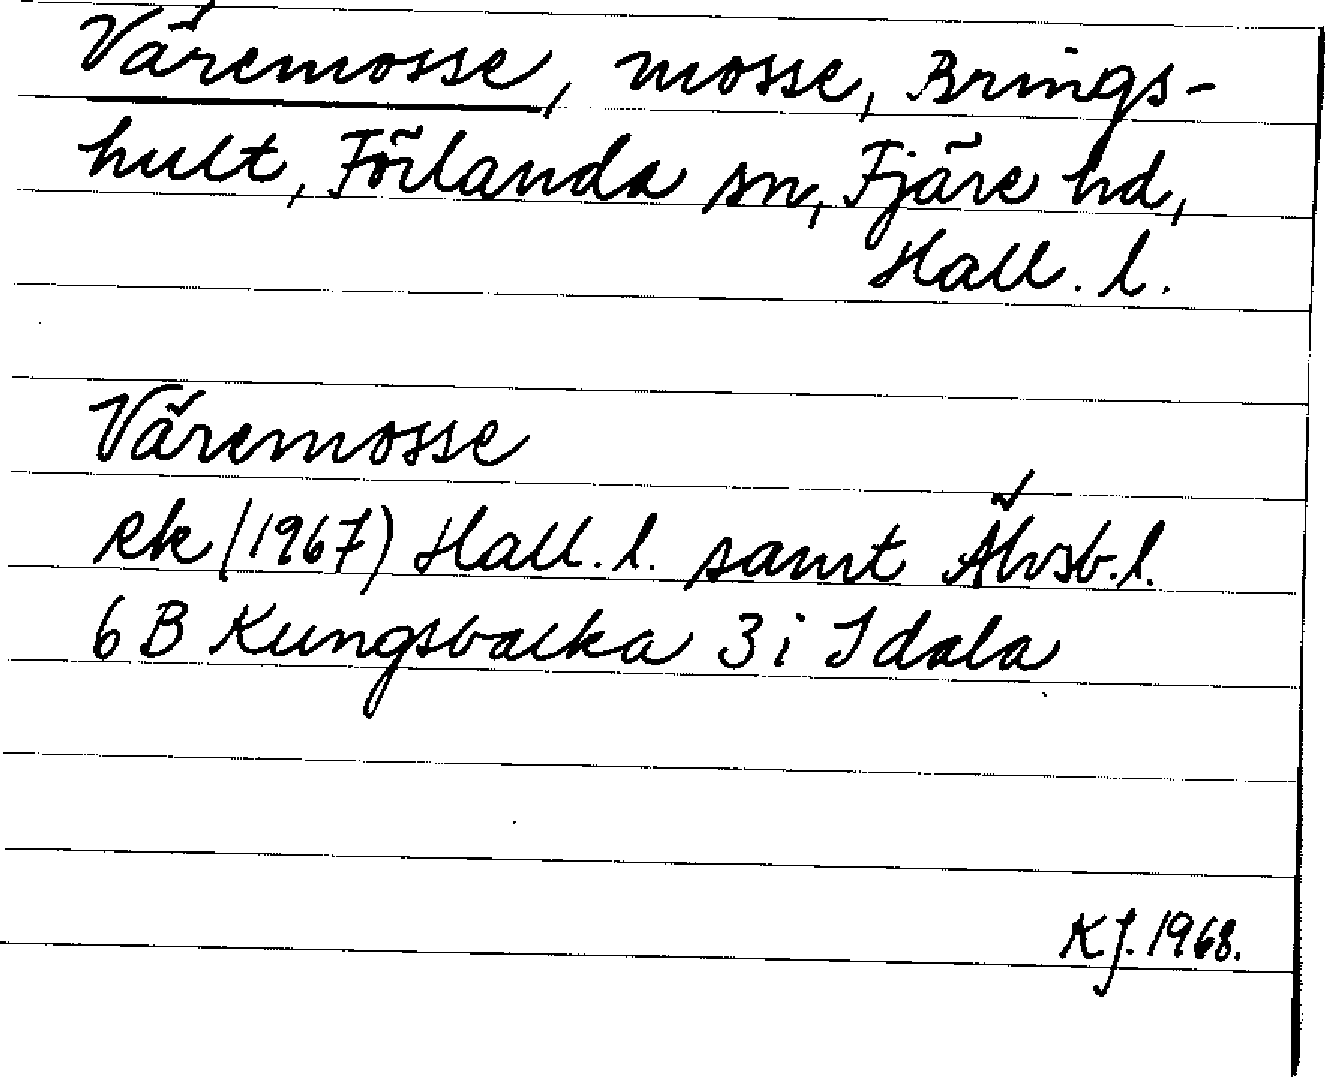 Väremosse, mosse, Brings-
hult, Förlanda sn, Fjäre hd,
Hall. l.
Väremosse
ek (1967) Hall. l. samt Älvsb. l.
6 B Kungsbacka 3 i Idala
KJ. 1968.